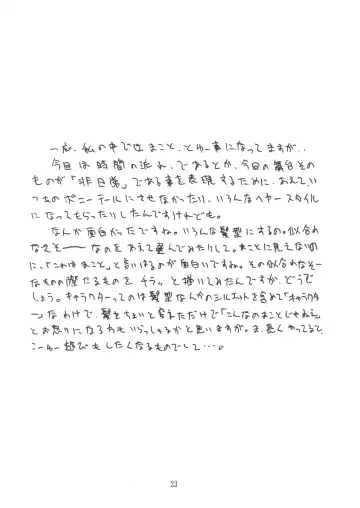 一応、私の中ではまこと、とゆー事になってますが、
今回は時間の流れ、であるとか、今回の舞台その
ものが「非日常」である事を表現するために、あえて、い
つものポニーテールにさせなかったり、いろんなヘアースタイル
になってもらったりしたんですけれども。
なんか面白かったですね。いろんな髪型にするの。似合わ
なさそーーなのをあえて選んでみたりして。まことに見えないの
に、「これはまこと」と言いはるのが面白いですね。その似合わなそー
なものの際たるものをチラッと描いてみたんですが、どうで
しょう。キャラクターってのは髪型なんかのシルエットを含めて「キャラクタ
ー」なわけで、髪をちょいと変えただけで「こんなのまことじゃねェ」
とお怒りになる方もいらっしゃるかと思いますが。ま、長くやってると、
こーゆー遊びもしたくなるものでして…。
23